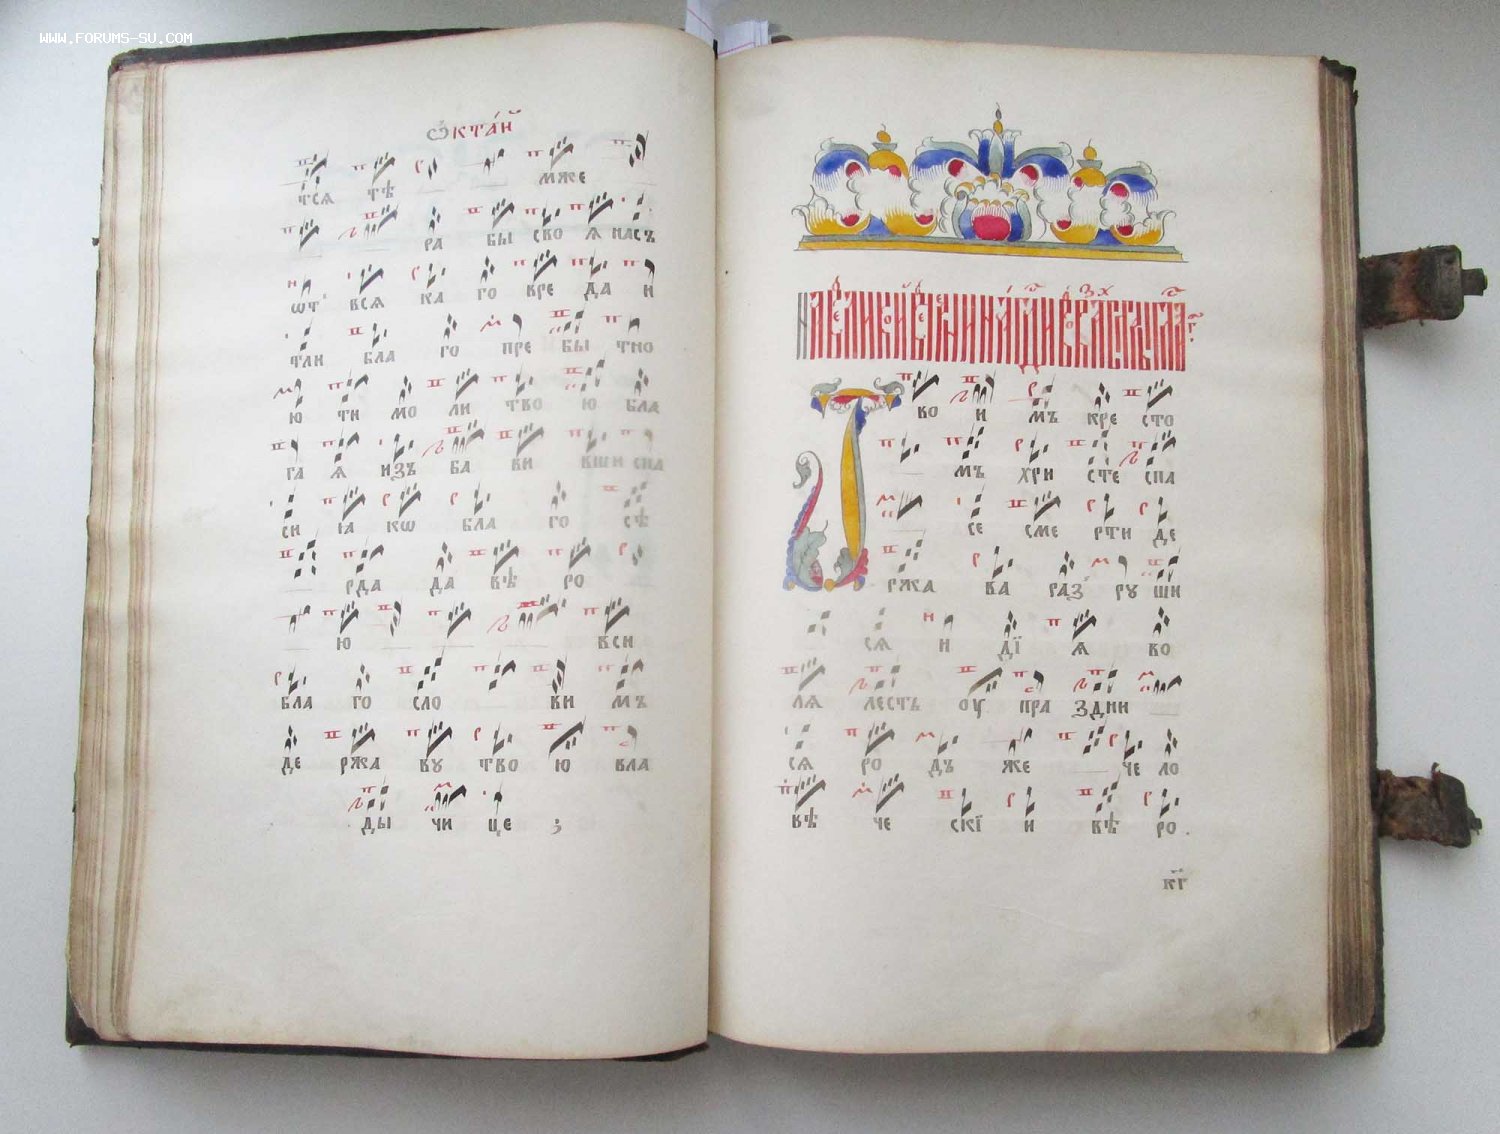 WWW.FORUMS-SU.COM
Ѻ҆кта́й
тсѧ тѣ мже
ра бы сво ѧ насъ
ѡт всѧ ка го вре да и
тли бла го пре бы тно
ю ти мо ли тво ю бла
га ѧ изъ ба ви вши спа
си ꙗ кѡ бла го сѣ
рда да вѣ ро
ю вси
бла го сло ви мъ
де ржа ву тво ю вла
ды чи це
ко и мъ кре сто
мъ хри сте спа
се сме рти де
ржа ва раз ру ши
сѧ и дї ѧ во
лѧ лесть оу пра здни
сѧ ро дъ же че ло
вѣ че скї и вѣ ро
кг